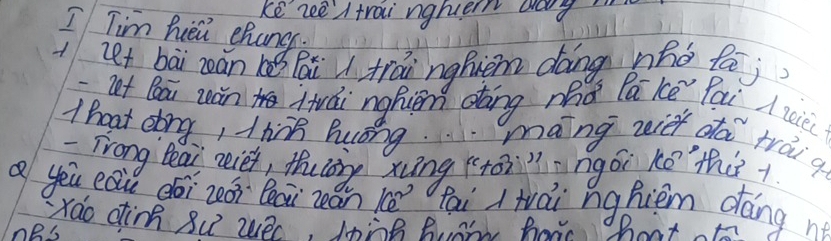 kể về 1 trải nghiệm đáng
I Tìm hiểu chung.
1 Viết bài văn kể lại 1 trải nghiệm đáng nhớ là;
- Viết bài văn 1 trải nghiệm đáng nhớ là kể lại 1 việc
1 hoạt động, 1 tình huống ... mà ng viết đã trải q
- Trong bài viết, thường xưng "tôi" - ngôi kể thứ 1.
2 yêu cầu đối với bài văn kể lại 1 trải nghiệm đáng nh
- xác định sự việc, tình huống hoặc hoạt
nhớ